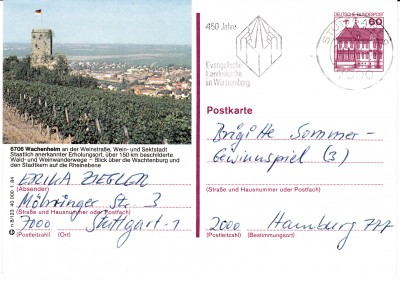 6706 Wachenheim an der Weinstraße, Wein- und Sektstadt
Staatlich anerkannter Erholungsort, über 150 km beschilderte
Wald- und Weinwanderwege – Blick über die Wachtenburg und
den Stadtkern auf die Rheinebene
ERIKA ZIEGLER
(Absender)
Möhringer Str. 3
(Straße und Hausnummer oder Postfach)
7000 Stuttgart-1
(Postleitzahl) (Ort)
450 Jahre
Evangelische
Landeskirche
in Württemberg
DEUTSCHE BUNDESPOST
60
Postkarte
Brigitte Sommer-
Gewinnspiel (3)
(Straße und Hausnummer oder Postfach)
2000 Hamburg 777
(Postleitzahl) (Bestimmungsort)